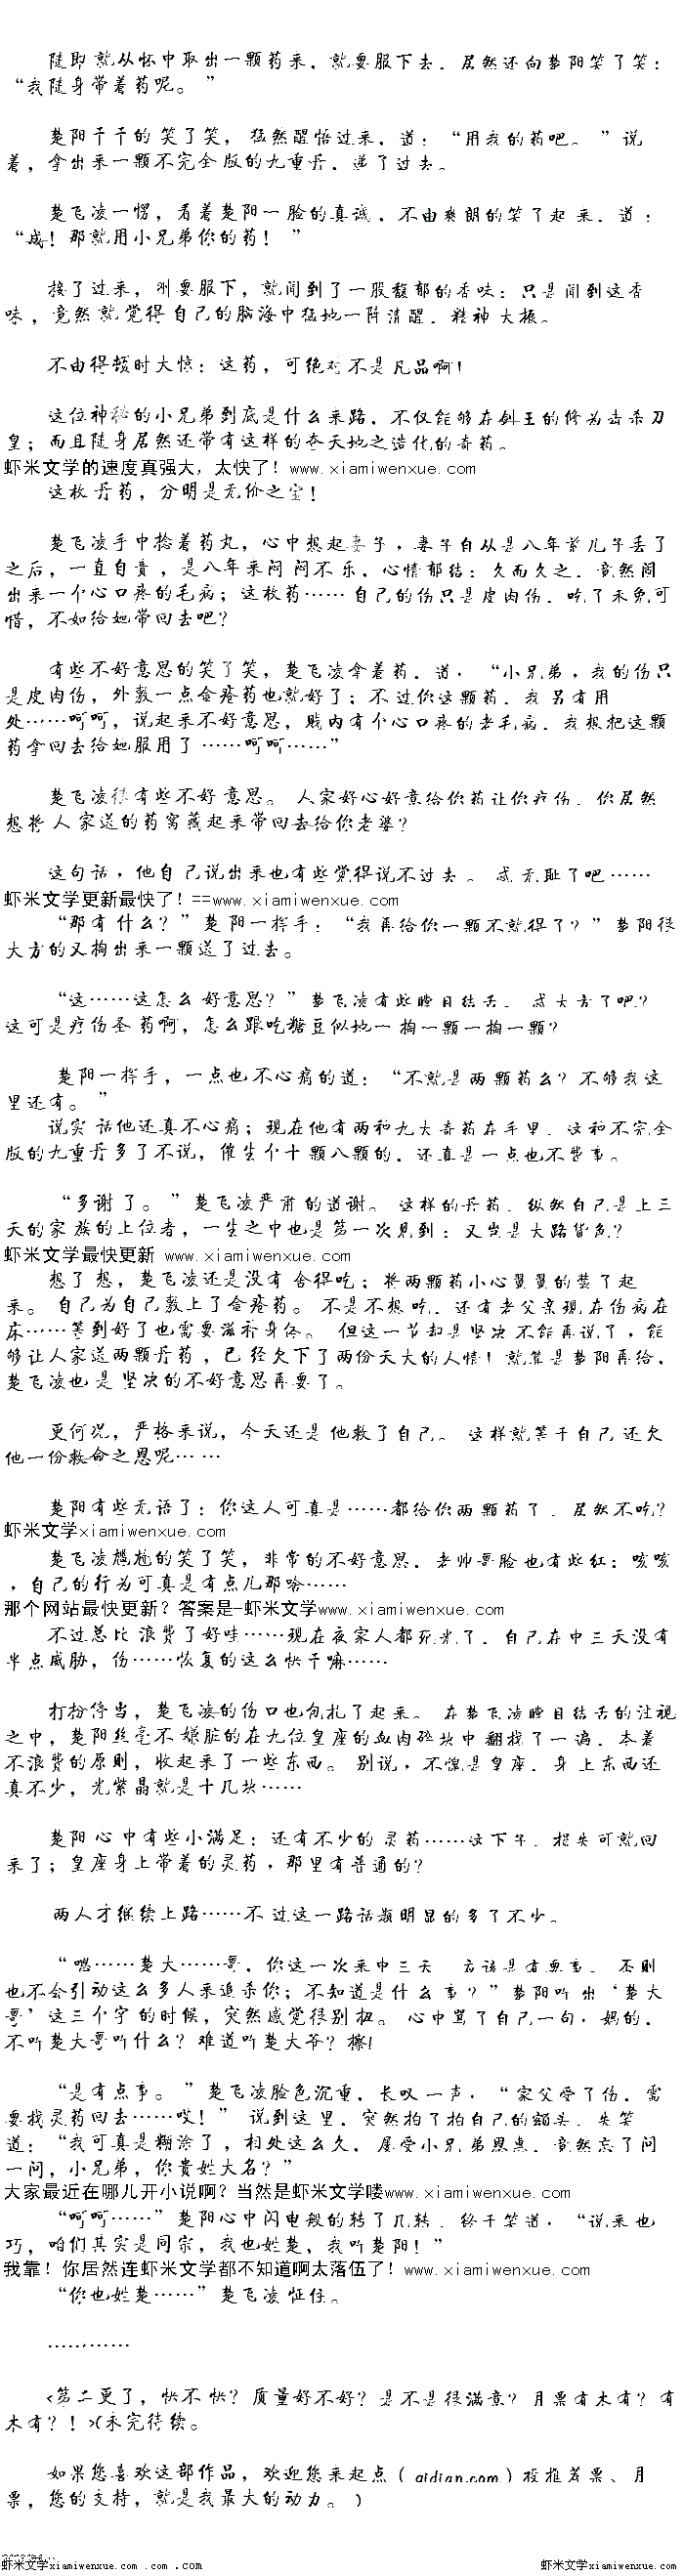 随即就从怀中取出一颗药来，就要服下去，居然还向楚阳笑了笑：
“我随身带着药呢。”
楚阳干干的笑了笑，猛然醒悟过来，道：“用我的药吧。”说
着，拿出来一颗不完全版的九重丹，递了过去。
楚飞凌一愣，看着楚阳一脸的真诚，不由爽朗的笑了起来，道：
“成！那就用小兄弟你的药！”
接了过来，刚要服下，就闻到了一股馥郁的香味；只是闻到这香
味，竟然就觉得自己的脑海中猛地一阵清醒，精神大振。
不由得顿时大惊：这药，可绝对不是凡品啊！
这位神秘的小兄弟到底是什么来路，不仅能够在剑王的修为击杀刀
皇；而且随身居然还带有这样的夺天地之造化的奇药。
虾米文学的速度真强大，太快了！www.xiamiwenxue.com
这枚丹药，分明是无价之宝！
楚飞凌手中捻着药丸，心中想起妻子，妻子自从是八年前儿子丢了
之后，一直自责，是八年来闷闷不乐，心情郁结；久而久之，竟然闹
出来一个心口疼的毛病；这枚药……自己的伤只是皮肉伤，吃了未免可
惜，不如给她带回去吧？
有些不好意思的笑了笑，楚飞凌拿着药，道，“小兄弟，我的伤只
是皮肉伤，外敷一点金疮药也就好了；不过你这颗药，我另有用
处……呵呵，说起来不好意思，贱内有个心口疼的老毛病，我想把这颗
药拿回去给她服用了……呵呵……”
楚飞凌很有些不好意思。人家好心好意给你药让你疗伤，你居然
想将人家送的药窝藏起来带回去给你老婆？
这句话，他自己说出来也有些觉得说不过去。咸无耻了吧……
虾米文学更新最快了！==www.xiamiwenxue.com
“那有什么？”楚阳一挥手：“我再给你一颗不就得了？”楚阳很
大方的又掏出来一颗送了过去。
“这……这怎么好意思？”楚飞凌有些瞠目结舌，咸大方了吧？
这可是疗伤圣药啊，怎么跟吃糖豆似地一掏一颗一掏一颗？
楚阳一挥手，一点也不心痛的道：“不就是两颗药么？不够我这
里还有。”
说实话他还真不心痛；现在他有两种九大奇药在手里，这种不完全
版的九重丹多了不说，催生个十颗八颗的，还真是一点也不费事。
“多谢了。”楚飞凌严肃的道谢。这样的丹药，纵然自己是上三
天的家族的上位者，一生之中也是第一次见到；又岂是大路货色？
虾米文学最快更新 www.xiamiwenxue.com
想了想，楚飞凌还是没有舍得吃；将两颗药小心翼翼的装了起
来。自己为自己敷上了金疮药。不是不想吃，还有老父亲现在伤病在
床……等到好了也需要滋补身体。但这一节却是坚决不能再说了，能
够让人家送两颗丹药，已经欠下了两份天大的人情！就算是楚阳再给，
楚飞凌也是坚决的不好意思再要了。
更何况，严格来说，今天还是他救了自己。这样就等于自己还欠
他一份救命之恩呢……
楚阳有些无语了：你这人可真是……都给你两颗药了，居然不吃？
虾米文学xiamiwenxue.com
楚飞凌尴尬的笑了笑，非常的不好意思，老帅哥脸也有些红：咳咳
，自己的行为可真是有点儿那啥……
那个网站最快更新？答案是-虾米文学www.xiamiwenxue.com
不过总比浪费了好哇……现在夜家人都死光了，自己在中三天没有
半点威胁，伤……恢复的这么快干嘛……
打扮停当，楚飞凌的伤口也包扎了起来。在楚飞凌瞠目结舌的注视
之中，楚阳丝毫不嫌脏的在九位皇座的血肉碎块中翻找了一遍，本着
不浪费的原则，收起来了一些东西。别说，不愧是皇座，身上东西还
真不少，光紫晶就是十几块……
楚阳心中有些小满足：还有不少的灵药……这下午，损失可就回
来了；皇座身上带着的灵药，那里有普通的？
两人才继续上路……不过这一路话题明显的多了不少。
“嗯……楚大……哥，你这一次来中三天，应该是有要事，否则
也不会引动这么多人来追杀你；不知道是什么事？”楚阳听出‘楚大
哥’这三个字的时候，突然感觉很别扭。心中骂了自己一句，妈的，
不听楚大哥听什么？难道听楚大爷？擦！
“是有点事。”楚飞凌脸色沉重，长叹一声，“家父受了伤，需
要找灵药回去……哎！”说到这里，突然拍了拍自己的额头，失笑
道：“我可真是糊涂了，相处这么久，屡受小兄弟恩点，竟然忘了问
一问，小兄弟，你贵姓大名？”
大家最近在哪儿开小说啊？当然是虾米文学喽www.xiamiwenxue.com
“呵呵……”楚阳心中闪电般的转了几转，终于笑道，“说来也
巧，咱们其实是同宗，我也姓楚，我听楚阳！”
我靠！你居然连虾米文学都不知道啊太落伍了！www.xiamiwenxue.com
“你也姓楚……”楚飞凌怔住。
…………
<第二更了，快不快？质量好不好？是不是很满意？月票有木有？有
木有？！>(未完待续。
如果您喜欢这部作品，欢迎您来起点（qidian.com）投推荐票、月
票，您的支持，就是我最大的动力。)
虾米文学xiamiwenxue.com .com .com
虾米文学xiamiwenxue.com